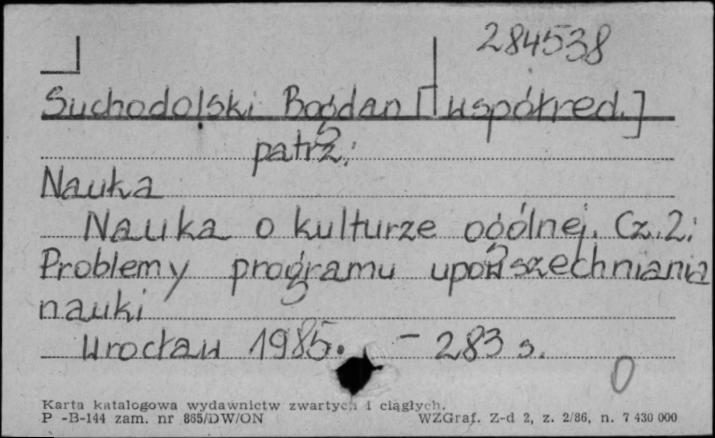 284538
Suchodolski Bogdan [współred.]
patrz:
Nauka
Nauka o kulturze ogólnej. Cz.2:
Problemy programu upowszechniania
nauki
Wrocław 1985. - 283 s.
0
Karta katalogowa wydawnictw zwartych i ciągłych.
P -B-144 zam. nr 865/DW/ON WZGraf. Z-d 2, z. 2/86, n. 7 430 000